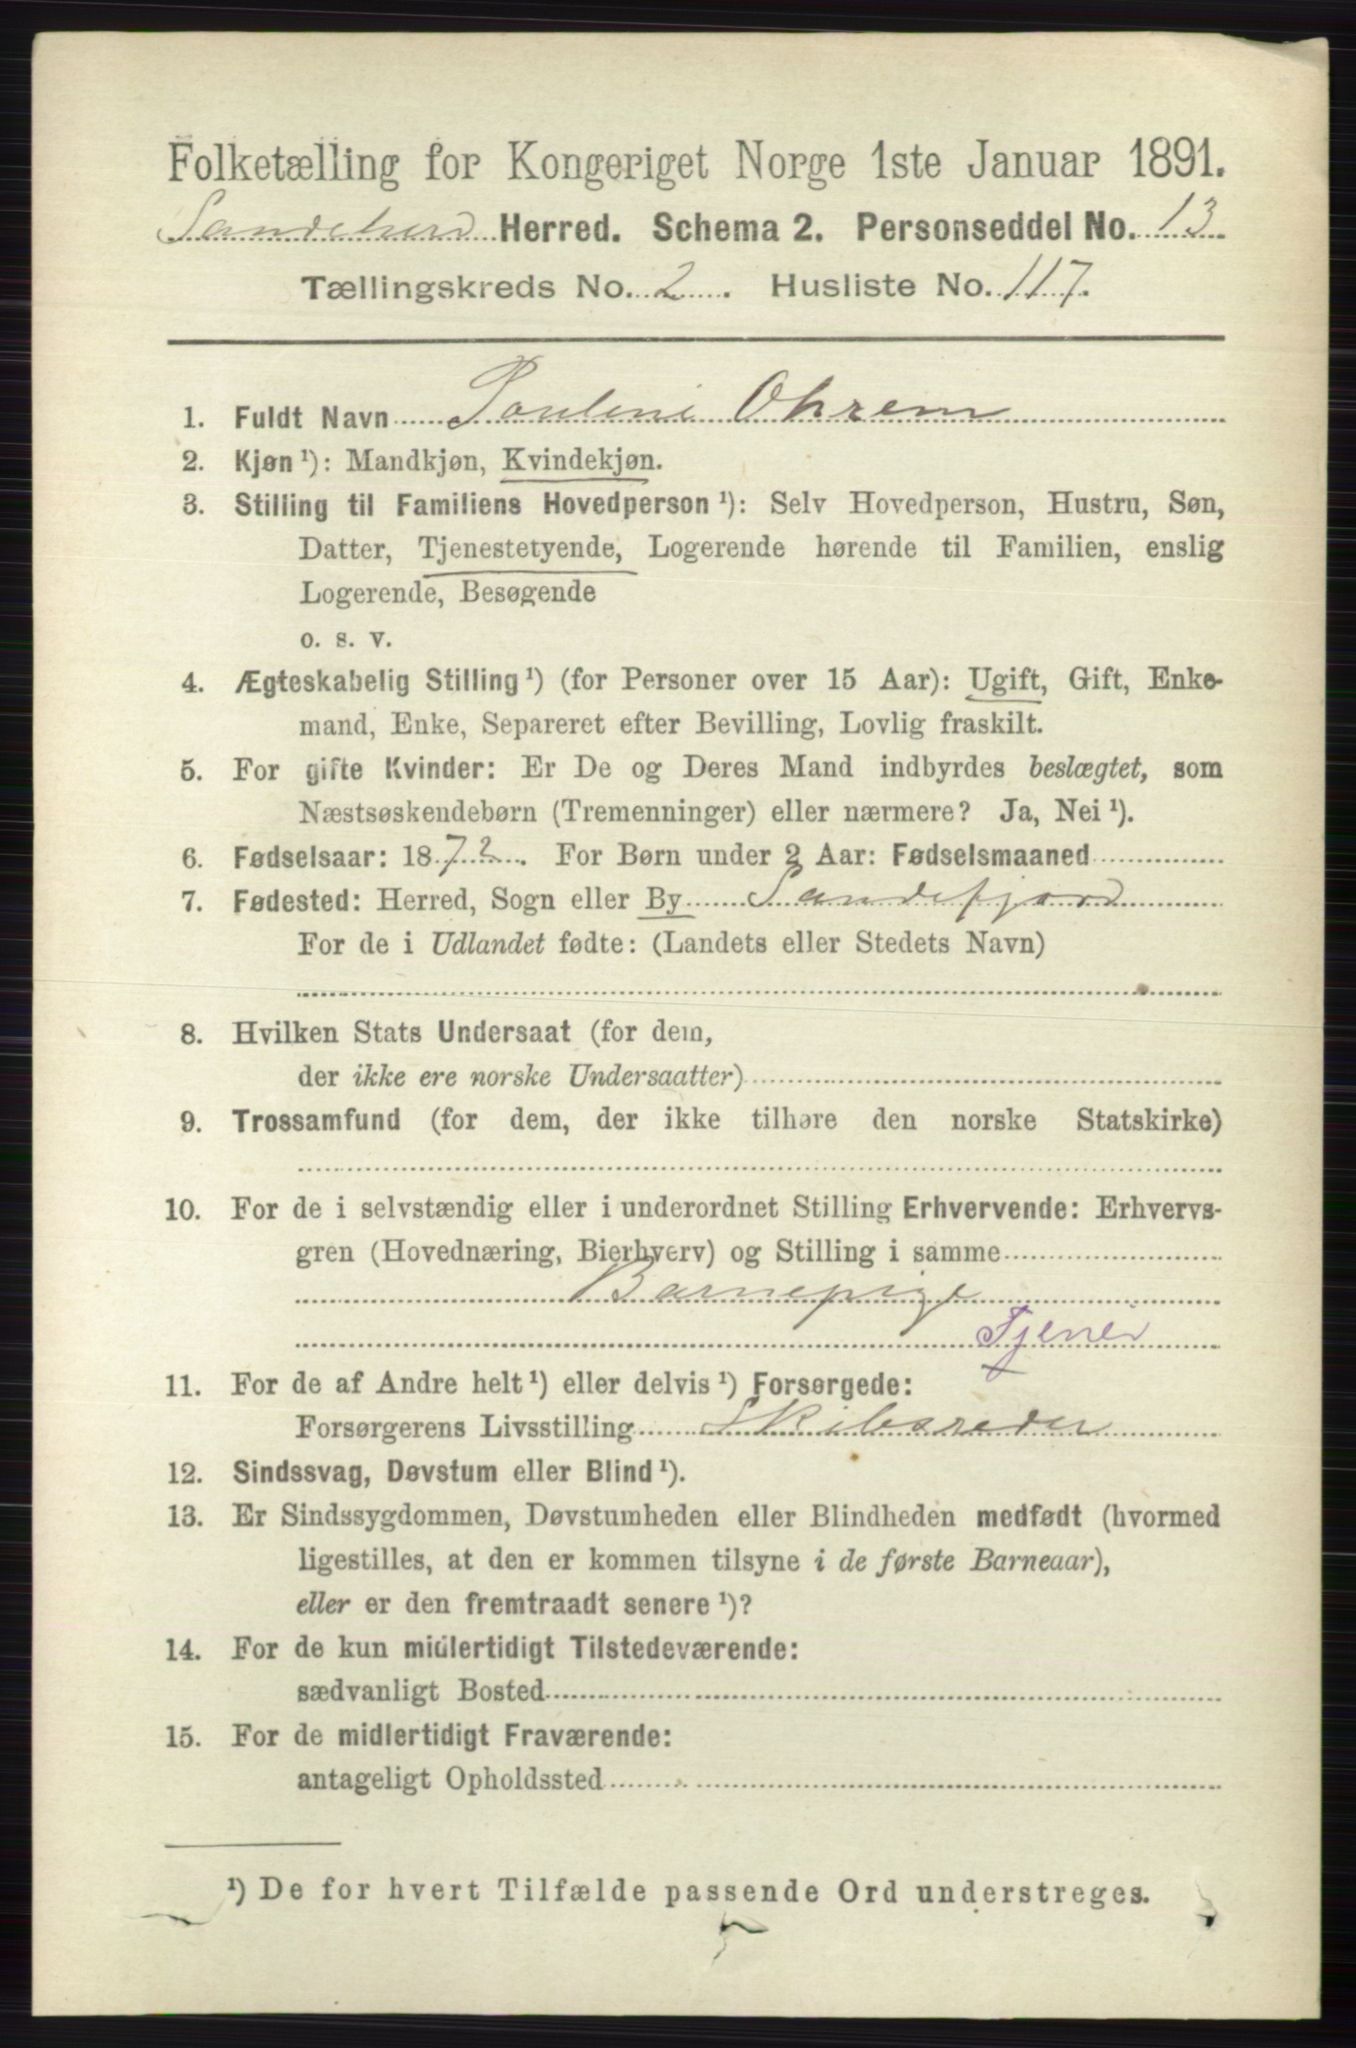 Folketælling for Kongeriget Norge 1ste Januar 1891.
Sandeherd Herred. Schema 2. Personseddel No. 13
Tællingskreds No. 2. Husliste No. 117.
1. Fuldt Navn Pauline Ohrem
2. Kjøn ¹): Mandkjøn, Kvindekjøn.
3. Stilling til Familiens Hovedperson ¹): Selv Hovedperson, Hustru, Søn,
Datter, Tjenestetyende, Logerende hørende til Familien, enslig
Logerende, Besøgende
o. s. v.
4. Ægteskabelig Stilling ¹) (for Personer over 15 Aar): Ugift, Gift, Enke-
mand, Enke, Separeret efter Bevilling, Lovlig fraskilt.
5. For gifte Kvinder: Er De og Deres Mand indbyrdes beslægtet, som
Næstsøskendebørn (Tremenninger) eller nærmere? Ja, Nei ¹).
6. Fødselsaar: 1872. For Børn under 2 Aar: Fødselsmaaned
7. Fødested: Herred, Sogn eller By Sandefjord
For de i Udlandet fødte: (Landets eller Stedets Navn)
8. Hvilken Stats Undersaat (for dem,
der ikke ere norske Undersaatter)
9. Trossamfund (for dem, der ikke tilhøre den norske Statskirke)
10. For de i selvstændig eller i underordnet Stilling Erhvervende: Erhvervs-
gren (Hovednæring, Bierhverv) og Stilling i samme
Barnepige
Tjener
11. For de af Andre helt ¹) eller delvis ¹) Forsørgede:
Forsørgerens Livsstilling Skibsreder
12. Sindssvag, Døvstum eller Blind ¹).
13. Er Sindssygdommen, Døvstumheden eller Blindheden medfødt (hvormed
ligestilles, at den er kommen tilsyne i de første Barneaar),
eller er den fremtraadt senere ¹)?
14. For de kun midlertidigt Tilstedeværende:
sædvanligt Bosted
15. For de midlertidigt Fraværende:
antageligt Opholdssted
¹) De for hvert Tilfælde passende Ord understreges.